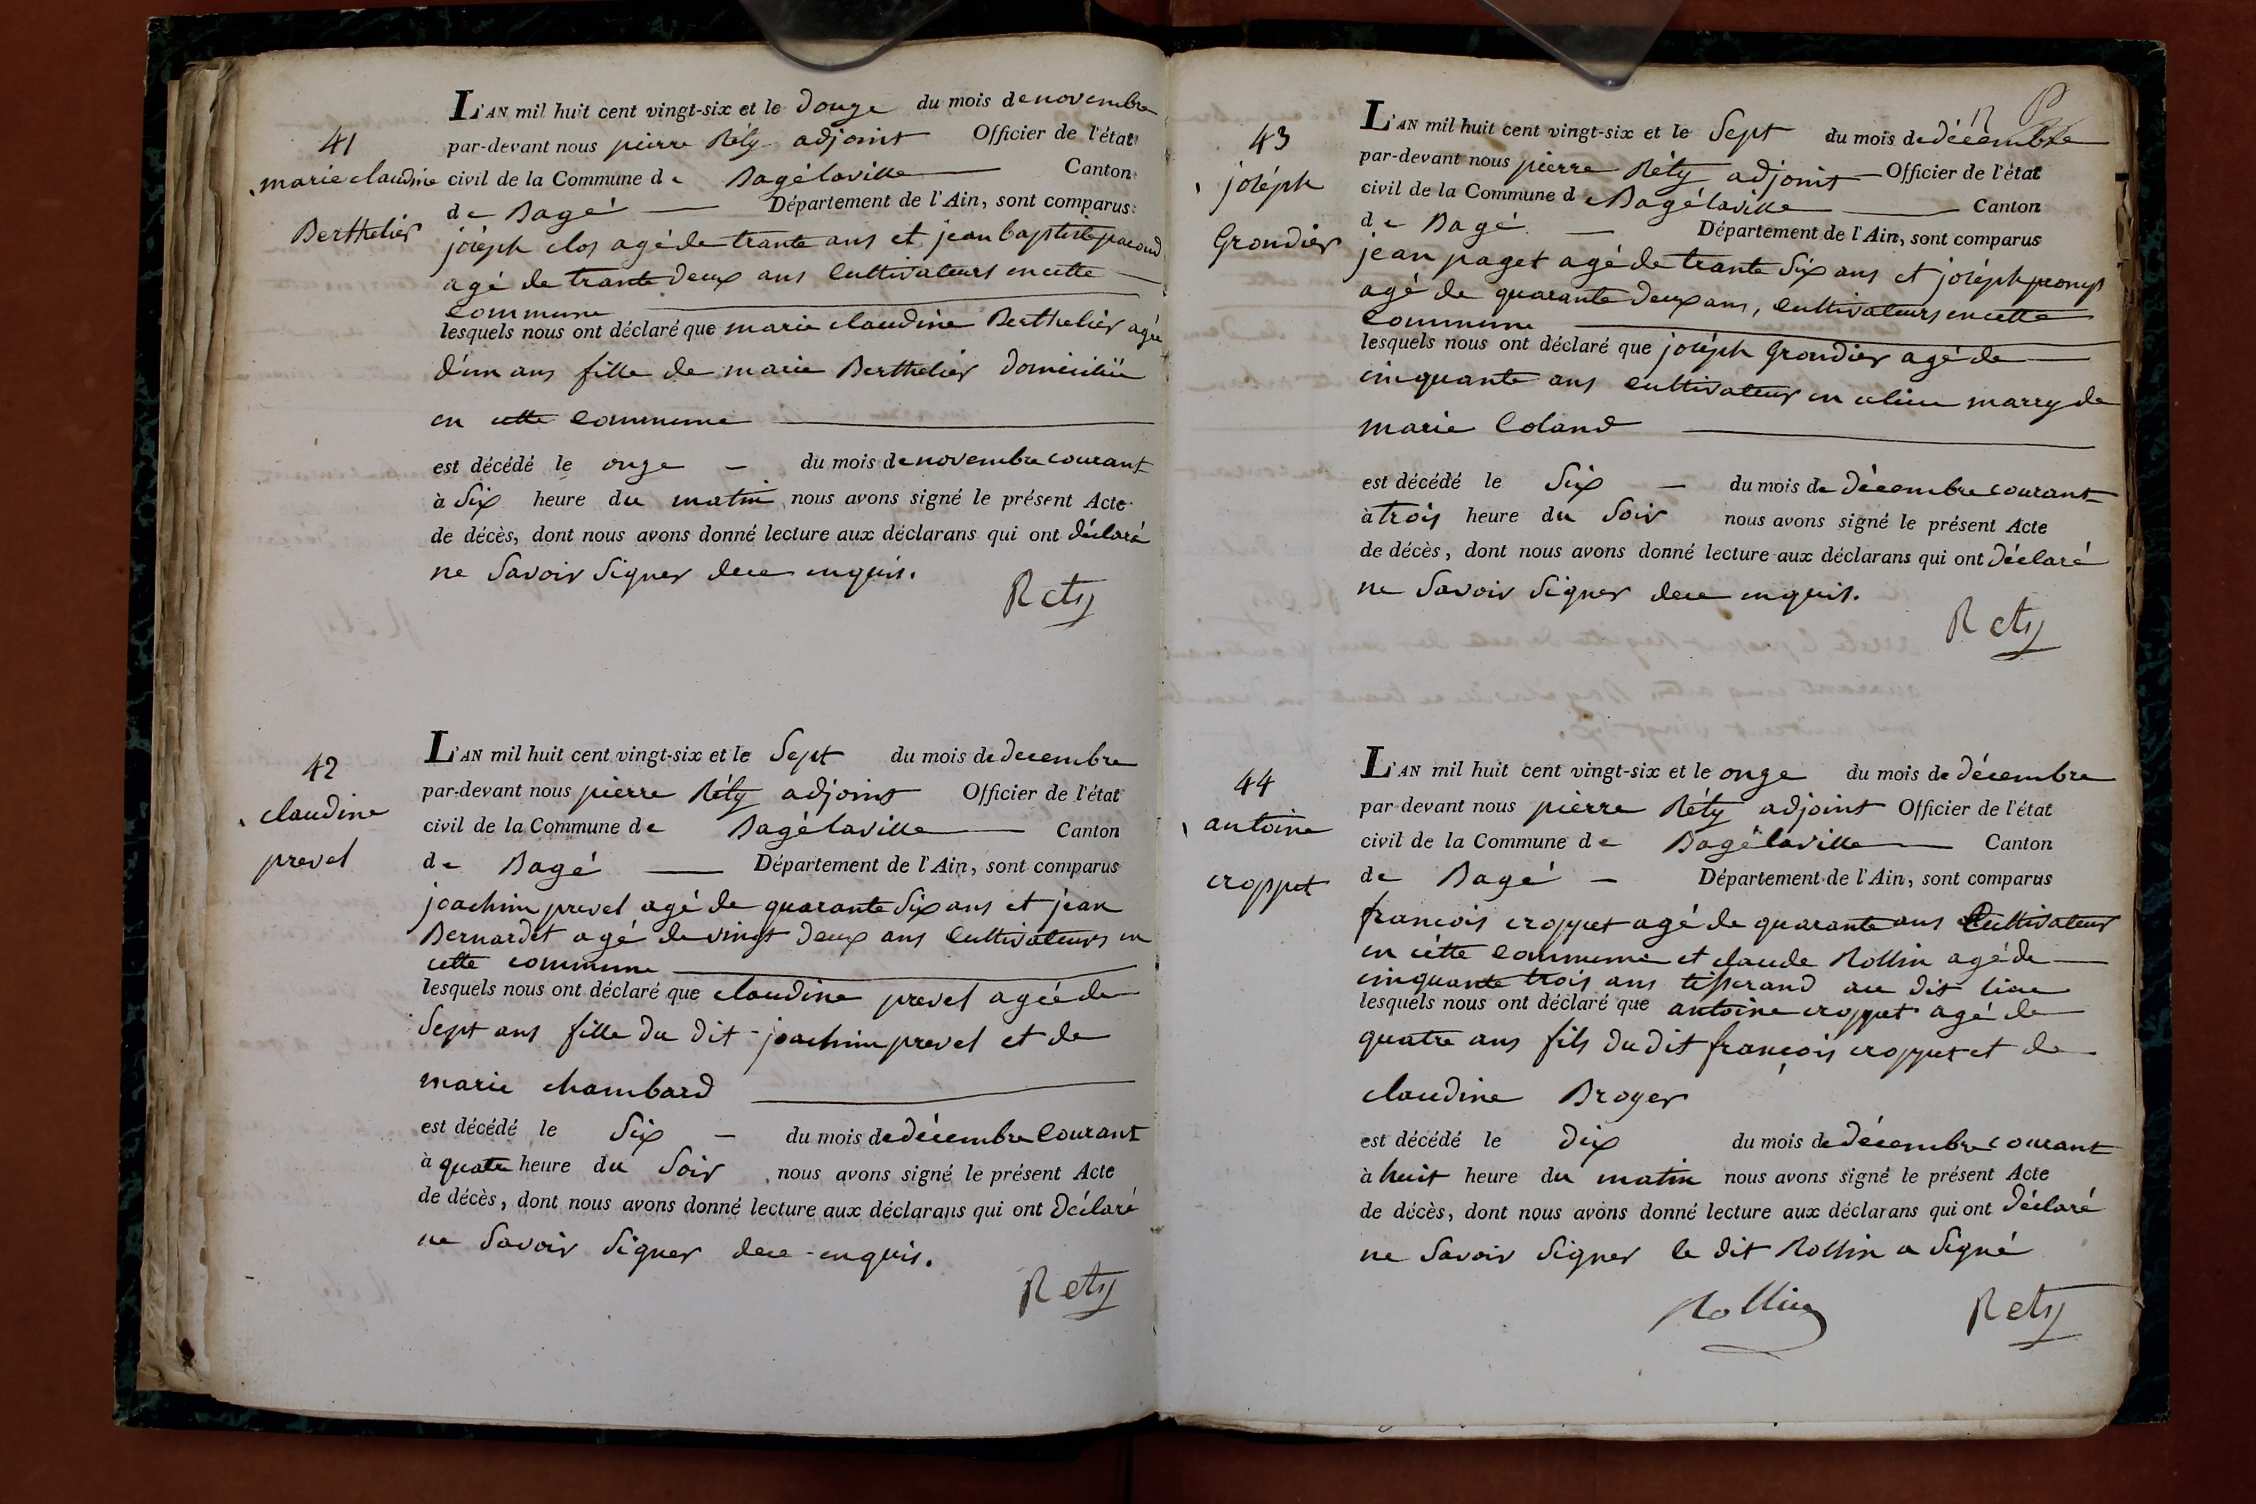 41
marie claudine
Berthelier
L'AN mil huit cent vingt-six et le douze du mois de novembre
par-devant nous pierre Réty adjoint Officier de l'état
civil de la Commune de Bagélaville Canton
de Bagé Département de l'Ain, sont comparus
joséph clos agé de trante ans et jean baptiste pacoud
agé de trante deux ans Cultivateurs en cette
Commune
lesquels nous ont déclaré que marie claudine Berthelier agée
d'un ans fille de marie Berthelier domiciliée
en cette Commune
est décédé le onze du mois de novembre courant
à Six heure du matin nous avons signé le présent Acte
de décès, dont nous avons donné lecture aux déclarans qui ont déclaré
ne Savoir Signer de ce enquis.
Rety
42
claudine
prevel
L'AN mil huit cent vingt-six et le Sept du mois de decembre
par-devant nous pierre Réty adjoint Officier de l'état
civil de la Commune de Bagélaville Canton
de Bagé Département de l'Ain, sont comparus
joachim prevel agé de quarante Six ans et jéan
Bernardet agé de vingt deux ans Cultivateurs en
cette commune
lesquels nous ont déclaré que claudine prevel agée de
Sept ans fille du dit joachim prevel et de
marie chambard
est décédé le Six du mois de décembre Courant
à quatre heure du Soir nous avons signé le présent Acte
de décès, dont nous avons donné lecture aux déclarans qui ont déclaré
ne Savoir Signer de ce enquis.
Rety
43
joséph
Grondier
L'AN mil huit cent vingt-six et le Sept du mois de décembre
par-devant nous pierre Réty adjoint Officier de l'état
civil de la Commune de Bagélaville Canton
de Bagé Département de l'Ain, sont comparus
jean paget agé de trante Six ans et joséph
agé de quarante deux ans, Cultivateurs en cette
Commune
lesquels nous ont déclaré que joséph Grondier agé de
cinquante ans Cultivateur en ce lieu marry de
marie Coland
est décédé le Six du mois de décembre courant
à trois heure du Soir nous avons signé le présent Acte
de décès, dont nous avons donné lecture aux déclarans qui ont déclaré
ne Savoir Signer de ce enquis.
Rety
44
antoine
croppet
L'AN mil huit cent vingt-six et le onze du mois de décembre
par-devant nous pierre Réty adjoint Officier de l'état
civil de la Commune de Bagélaville Canton
de Bagé Département de l'Ain, sont comparus
francois croppet agé de quarante ans Cultivateur
en cétte Commune et claude Rollin agé de
cinquante trois ans tisserand au dit lieu
lesquels nous ont déclaré que antoine croppet agé de
quatre ans fils du dit françois croppet et de
claudine Broyer
est décédé le dix du mois de décembre courant
à huit heure du matin nous avons signé le présent Acte
de décès, dont nous avons donné lecture aux déclarans qui ont déclaré
ne Savoir Signer le dit Rollin a Signé
Rollin Rety